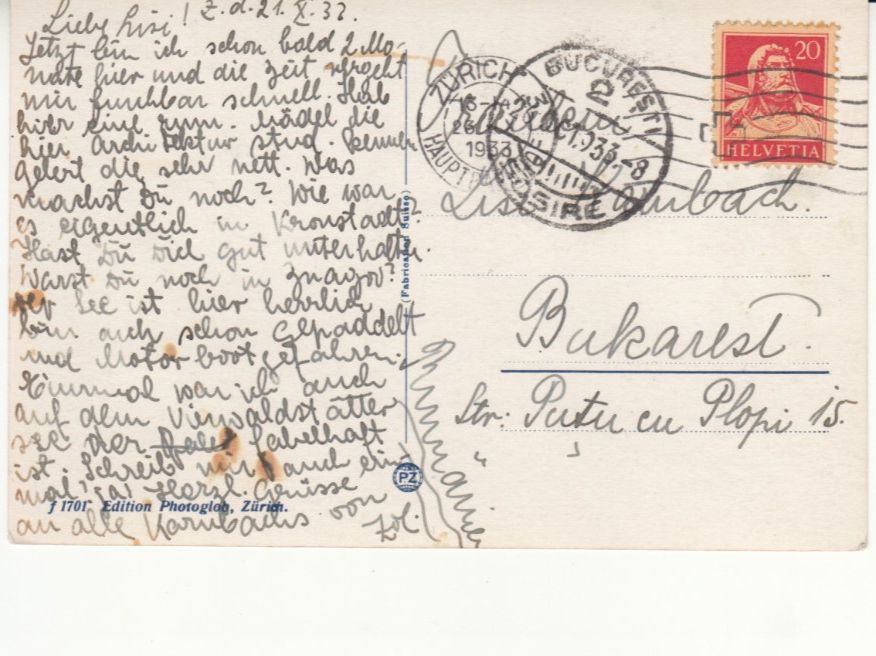 Liebe Lisi! Z. d. 21. X. 33.
Jetzt bin ich schon bald 2 Mo-
nate hier und die Zeit vergeht
mir furchtbar schnell. Hab
hier eine rum. Mädel die
hier Architektur stud. kennen
gelernt die sehr nett. Was
machst Du noch? Wie war
es eigentlich in Kronstadt?
Hast Du Dich gut unterhalten.
Warst Du noch in Snagov?
Der See ist hier herrlich
bin auch schon gepaddelt
und Motorboot gefahren.
Einmal war ich auch
auf dem Vierwaldstätter
see der fabelhaft
ist. Schreib mir auch ein
mal ja! Herzl. Grüsse
an alle Karnbachs von
ƒ 1701 Edition Photoglob, Zürich.
(Fabriqué en Suisse)
PZ
ZÜRICH
1933
HAUPT
BUCUREȘTI
2
SIRE
20
HELVETIA
Bukarest.
Str: Putu cu Plopi 15.
Rumänien